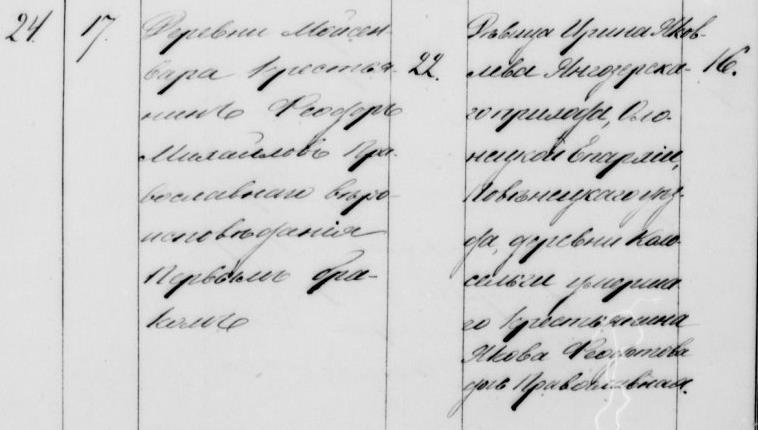 24. 17. Деревни Мойсен-
вара крестья-
нинъ Ѳеодоръ
Михайловъ Пра-
вославнаго вѣро-
исповѣданія
Первымъ бра-
комъ
22.
Дѣвица Ирина Яков-
лева Янгозерска-
го прихода, Оло-
нецкой Епархіи,
Повѣнецкаго уѣз-
да, деревни
сельги умерша-
го крестьянина
Якова Ѳеофатова
дчь Православная.
16.